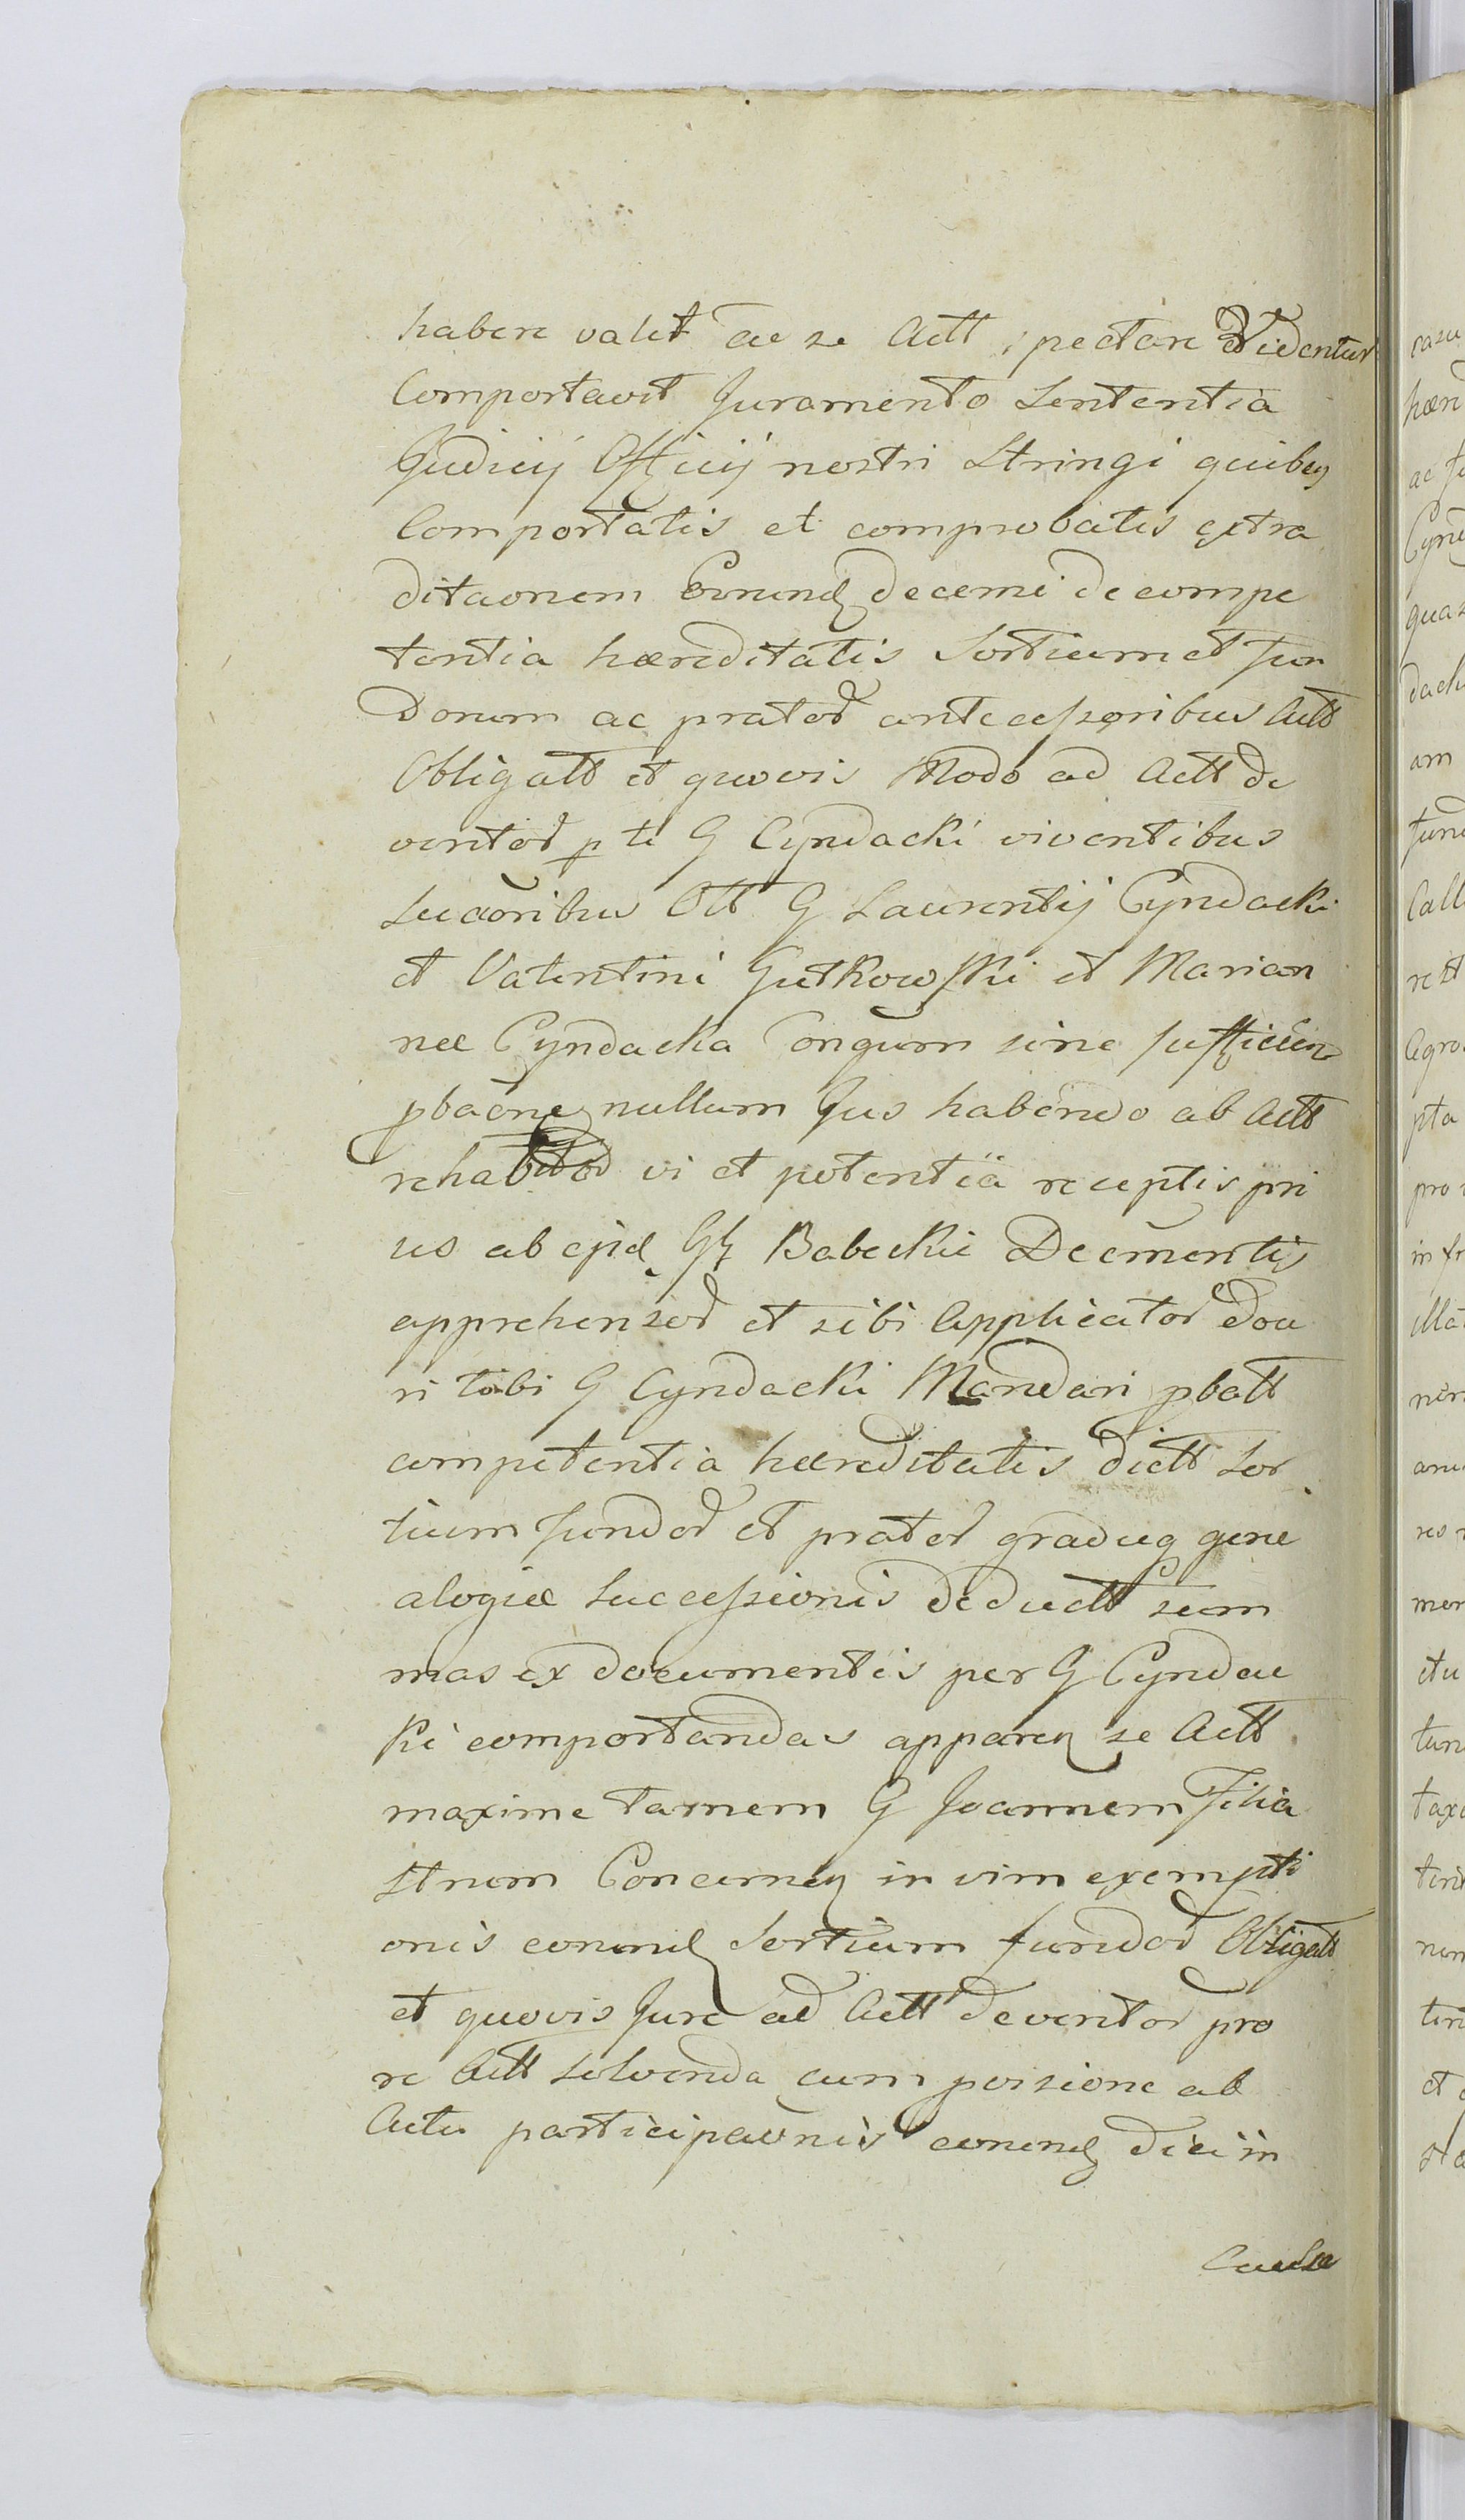 habere valet ac se Actt spectare Videntur
Comportavit Juramento Sententia
Judicij Officij nostri Stringi quibus
Comportatis et comprobatis extra
ditaonem Eorund decerni de compe
tentia hæreditatis Sortium et fun
dorum ac prator antecessoribus Actt
Obligatt et quovis Modo ad Actt de
ventor p te G Cyndacki viventibus
Sucaoribus Ott G Laurentij Cyndacki
et Valentini Gutkowski et Marian
næ Cyndacka Congum sine sufficien
pbaone nullum Jus habendo ab Actt
rehabitor vi et potentia receptis pri
us ab ejsd Gg Babeckie Decimentis
apprehensor et sibi Applicator edoce
ri tibi G Cyndacki Mandari pbatt
competentia hæreditatis dictt Sor
tium fundor et prator graduq gene
alogiæ Successionis deductt sum
mas ex documentis per G Cyndac
ki comportandas apparen se Actt
maxime tamem G Joannem Filia
strum Concernen in vim exempti
onis eorund Sortium fundor Obligatt
et quovis Jure ad Actt deventor pro
re Actt solvenda cum pensione ab
Actu participaonis eorund dici in
Causa